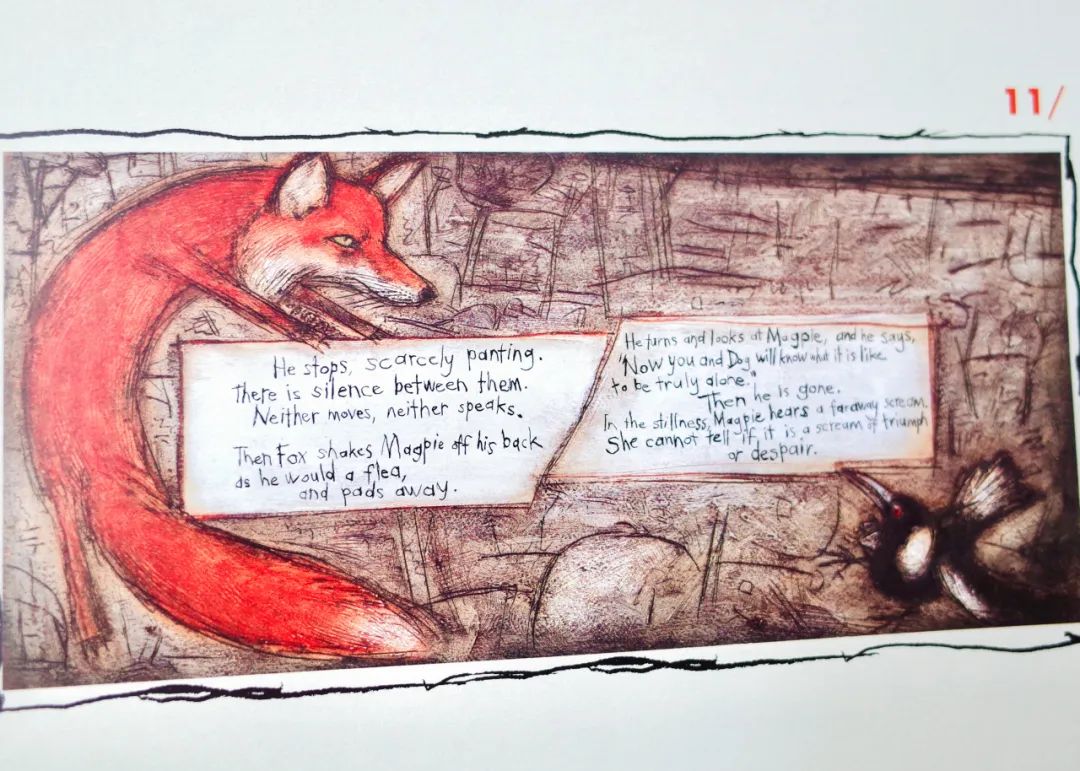 11/
He stops, scarcely panting.
There is silence between them.
Neither moves, neither speaks.
Then Fox shakes Magpie off his back
as he would a flea,
and pads away.
He turns and looks at Magpie, and he says,
"Now you and Dog will know what it is like
to be truly alone."
Then he is gone.
In the stillness, Magpie hears a faraway scream.
She cannot tell if it is a scream of triumph
or despair.